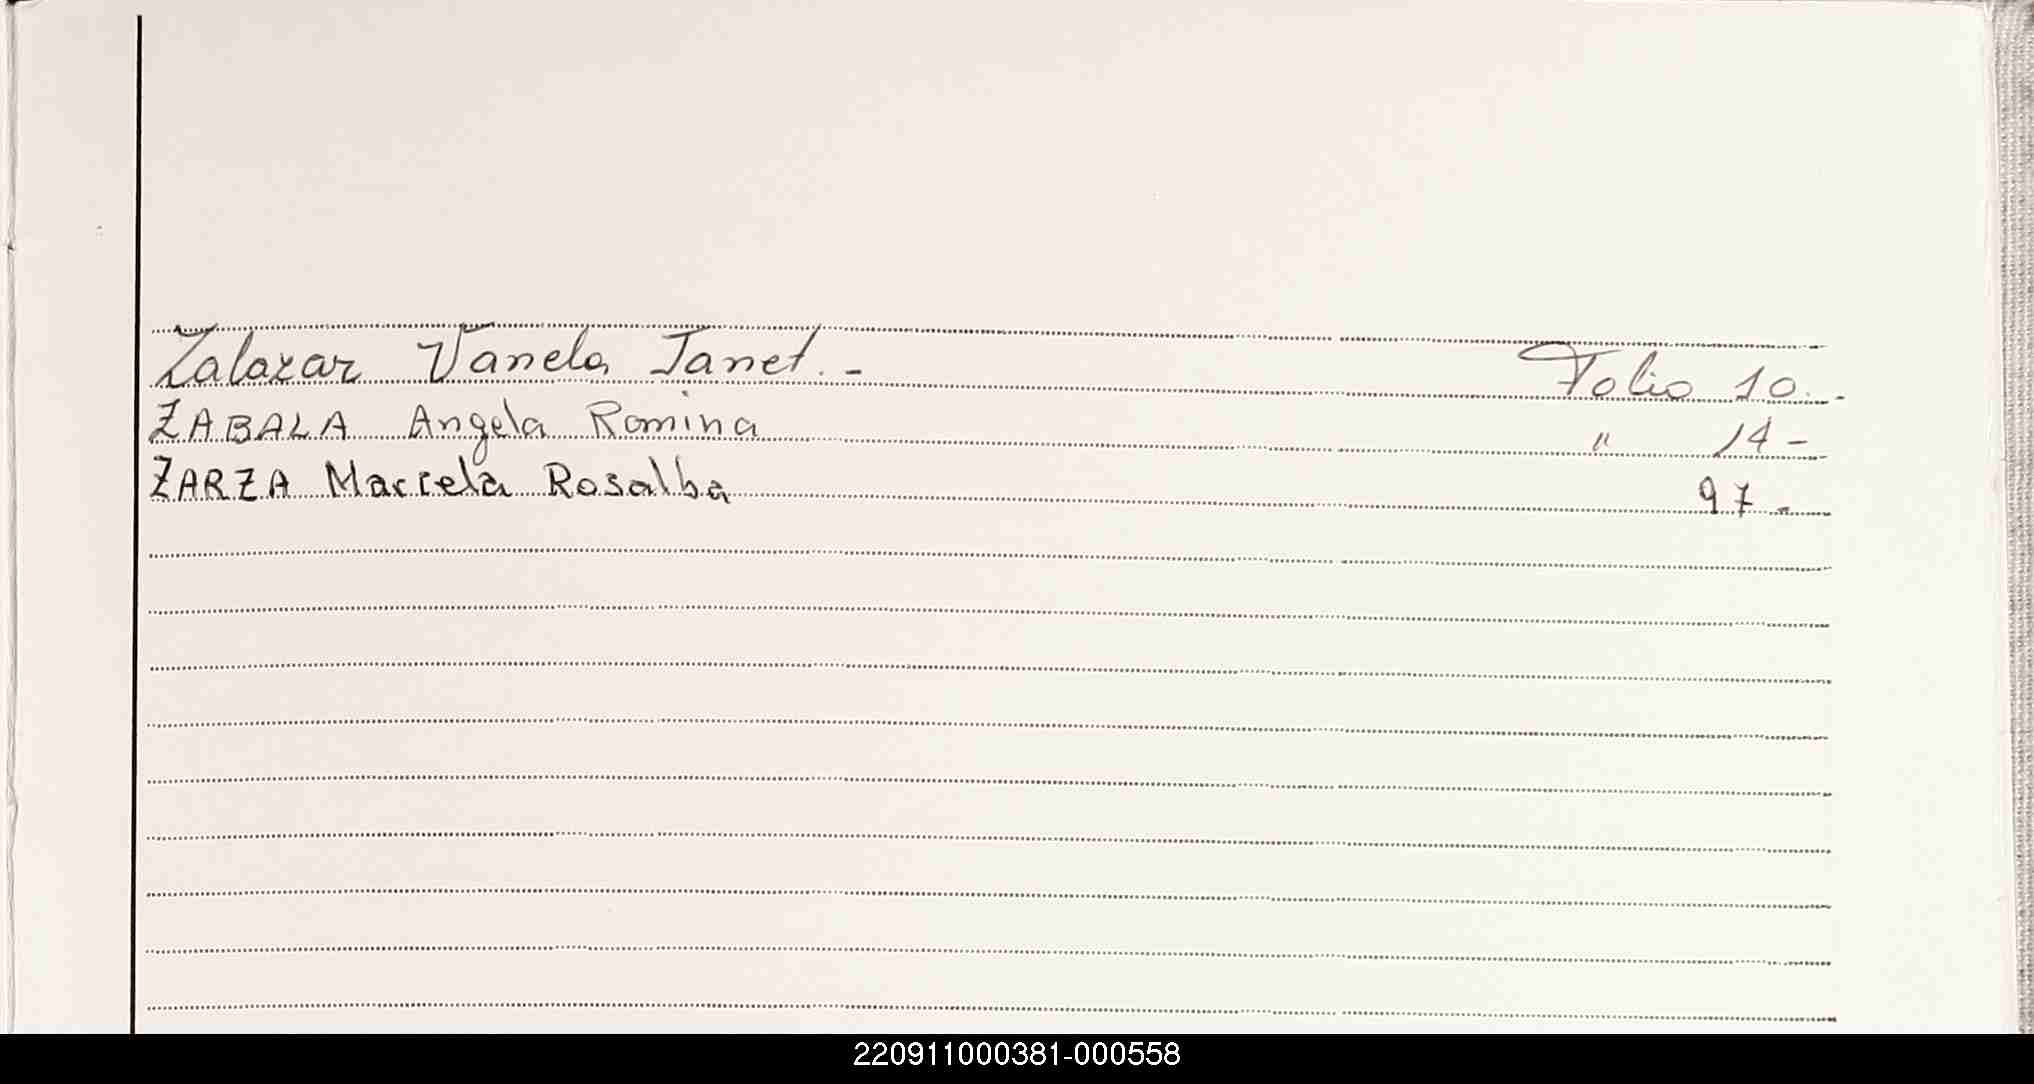 Zalazar Vanela Janet. - Folio 10. -
ZABALA Angela Romina " 14 -
ZARZA Marcela Rosalba 97 -
220911000381-000558